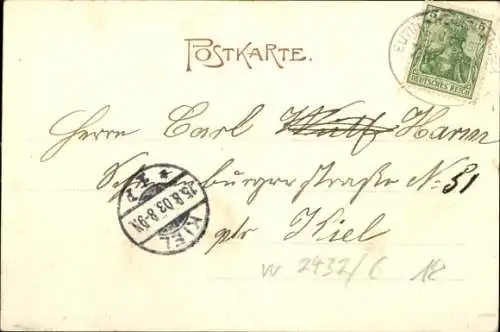 POSTKARTE.
5 5
DEUTSCHES REICH
EUTIN
Herrn Carl Wulf Harm
straße No 51
KIEL
15.8.03.8-9N.
ptr Kiel
W 2432/6 1K